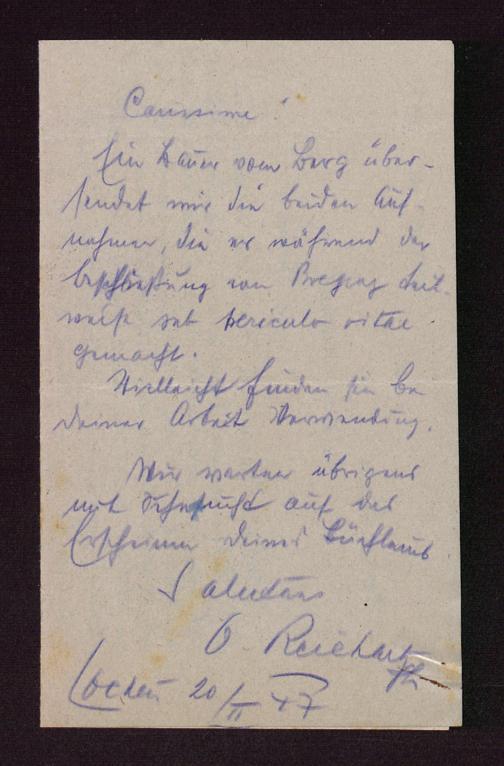 Carissime!
Ein Bauer vom Berg über-
sendet mir die beiden Auf-
nahmen, die er während der
Beschießung von Bregenz teil-
weise sub periculo vitae
gemacht.
Vielleicht finden sie bei
deiner Arbeit Verwendung.
Wir warten übrigens
mit Sehnsucht auf das
Erscheinen deines Büchleins.
Salutans
G. Reichart
Lochau 20/II 47